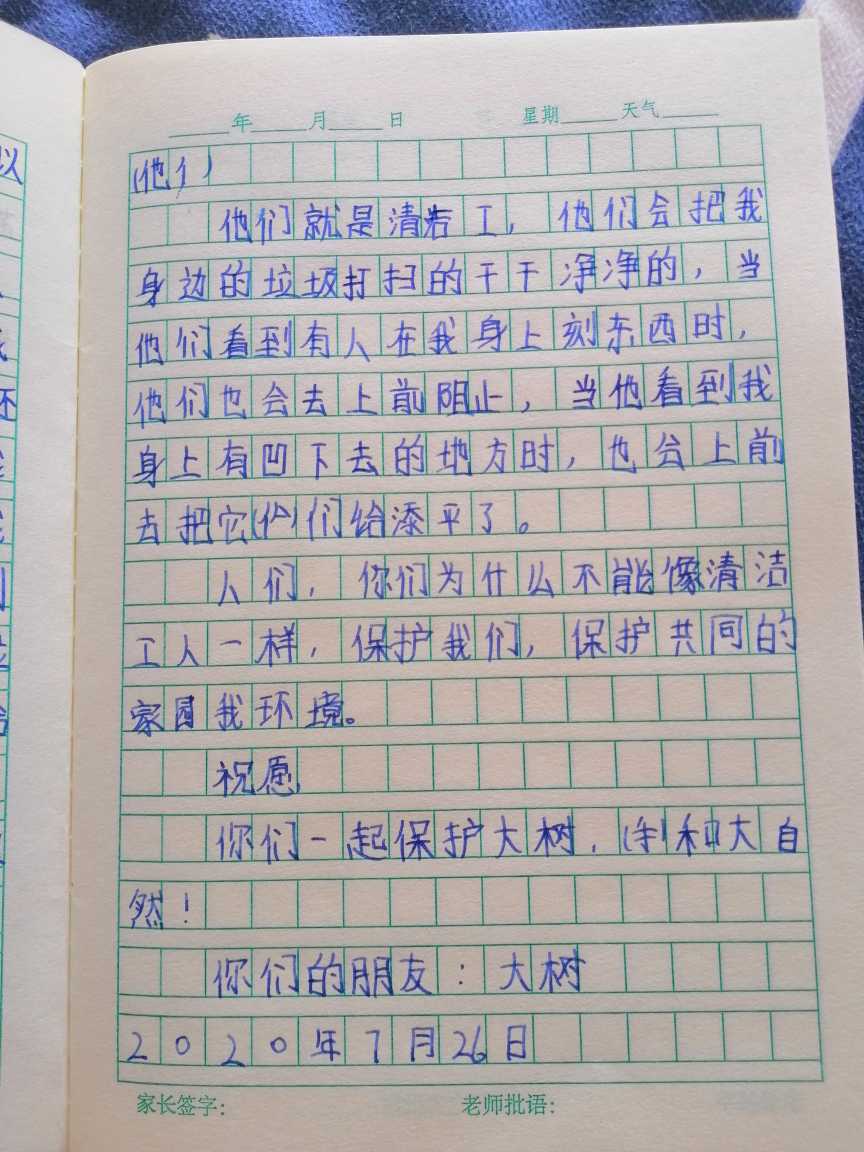 ____年____月____日 星期____天气____
(他亻)
他们就是清洁工，他们会把我
身边的垃圾打扫的干干净净的，当
他们看到有人在我身上刻东西时，
他们也会去上前阻止，当他看到我
身上有凹下去的地方时，也会上前
去把它 们给添平了。
人们，你们为什么不能像清洁
工人一样，保护我们，保护共同的
家园我环境。
祝愿
你们一起保护大树， 和大自
然！
你们的朋友：大树
2020年7月26日
家长签字： 老师批语：
以
还